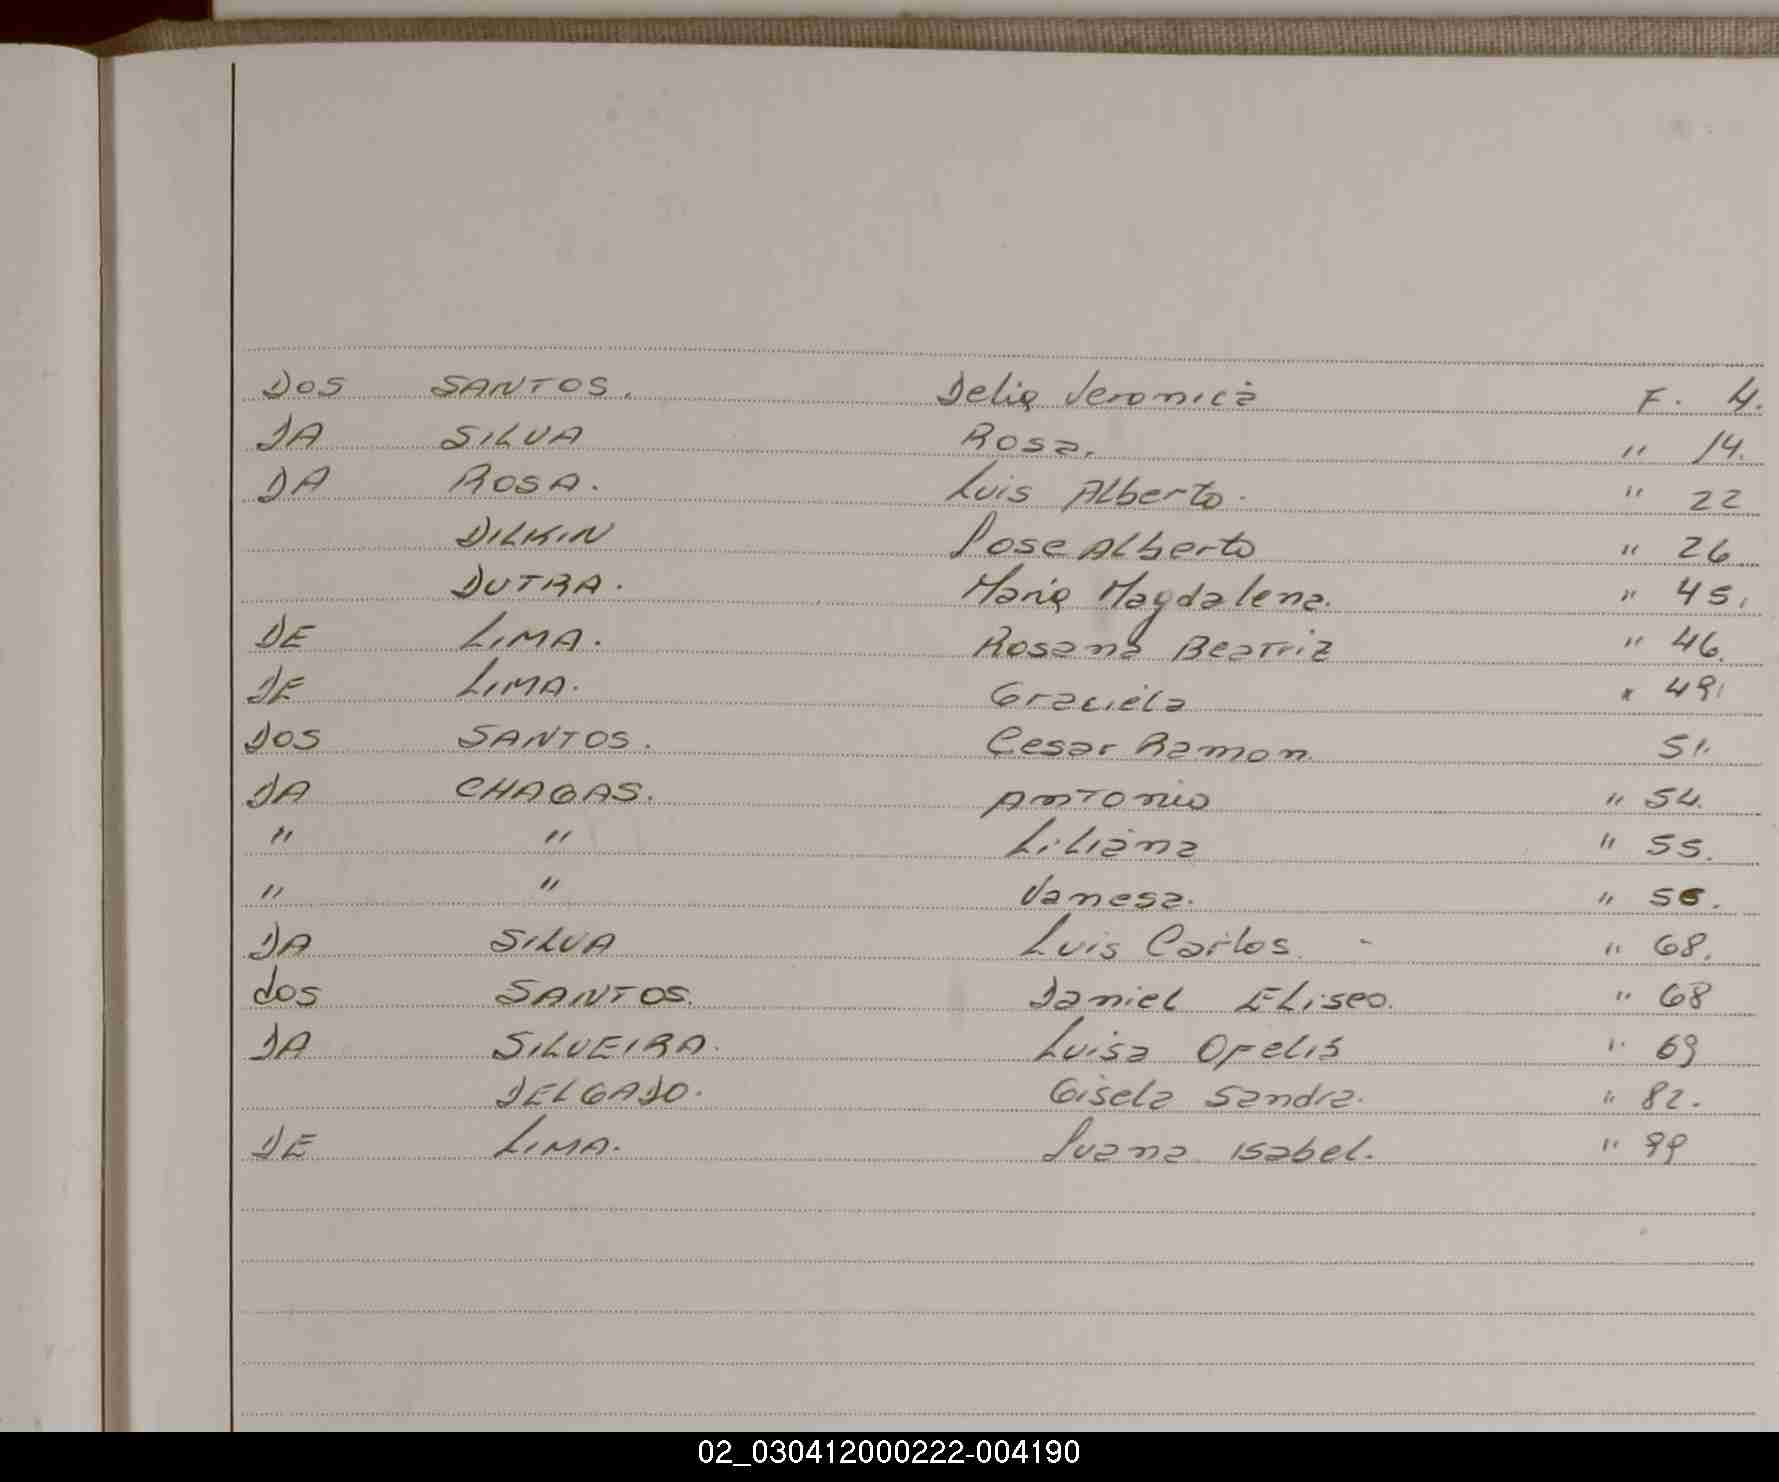 DOS SANTOS. Delia Veronica F. 4.
DA SILVA Rosa. " 14.
DA ROSA. Luis Alberto. " 22
DILKIN Jose Alberto " 26
DUTRA. Maria Magdalena. " 45.
DE LIMA. Rosana Beatriz " 46.
DE LIMA. Graciela " 49.
DOS SANTOS. Cesar Ramon. 51.
DA CHAGAS. Antonio " 54.
" " Liliana " 55.
" " Vanesa. " 56.
DA SILVA Luis Carlos. - " 68.
dos SANTOS. Daniel Eliseo. " 68
DA SILVEIRA. Luisa Ofelia " 69
DELGADO. Gisela Sandra. " 82.
DE LIMA. Juana Isabel. " 99
02_030412000222-004190